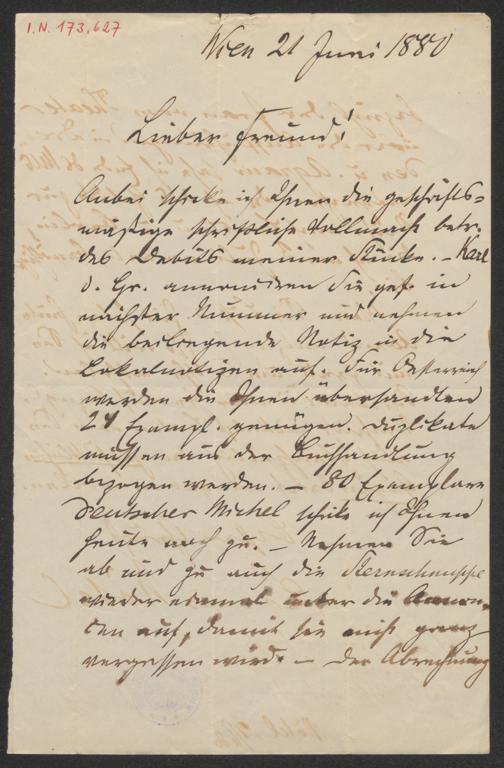 I.N. 173.627
Wien 21 Juni 1880
Lieber Freund!
Anbei schicke ich Ihnen die geschäfts-
mäßige schriftliche Vollmacht betr.
des Debits meiner Stücke. – Karl
d. Gr. annonciren Sie gef. in
nächster Nummer und nehmen
die beiliegende Notiz in die
Lokalnotizen auf. Für Oesterreich
werden die Ihnen übersandten
24 Exempl. genügen. Duplikate
müssen aus der Buchhandlung
bezogen werden. – 80 Exemplare
Deutscher Michel schicke ich Ihnen
heute noch zu. – Nehmen Sie
ab und zu auch die Sternschnuppe
wieder einmal unter die Annon-
cen auf, damit sie nicht ganz
vergessen wird. – Der Abrechnung